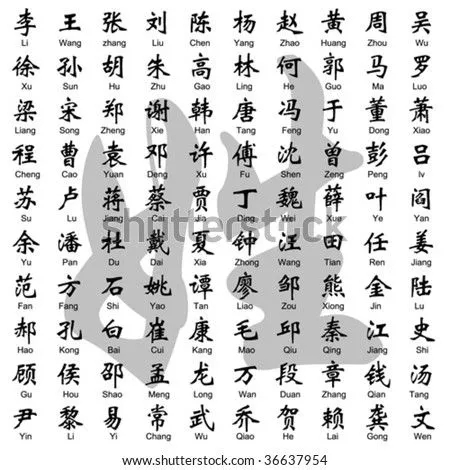 姓
李 王 张 刘 陈 杨 赵 黄 周 吴
Li Wang zhang Liu Chen Yang Zhao Huang Zhou Wu
徐 孙 胡 朱 高 林 何 郭 马 罗
Xu Sun Hu Zhu Gao Ling He Guo Ma Luo
梁 宋 郑 谢 韩 唐 冯 于 董 萧
Liang Song Zheng Xie Han Tang Feng Yu Dong Xiao
程 曹 袁 邓 许 傅 沈 曾 彭 吕
Cheng Cao Yuan Deng Xu Fu Shen Zeng Peng lv
苏 卢 蒋 蔡 贾 丁 魏 薛 叶 阎
Su Lu Jiang Cai Jia Ding Wei Xue Ye Yan
余 潘 杜 戴 夏 钟 汪 田 任 姜
Yu Pan Du Dai Xia Zhong Wang Tian Ren Jiang
范 方 石 姚 谭 廖 邹 熊 金 陆
Fan Fang Shi Yao Tan Liao Zou Xiong Jin Lu
郝 孔 白 崔 康 毛 邱 秦 江 史
Hao Kong Bai Cui Kang Mao Qiu Qing Jiang Shi
顾 侯 邵 孟 龙 万 段 章 钱 汤
Gu Hou Shao Meng Long Wan Duan Zhang Qian Tang
尹 黎 易 常 武 乔 贺 赖 龚 文
Yin Li Yi Chang Wu Qiao He Lai Gong Wen
shutterstock
www.shutterstock.com · 36637954